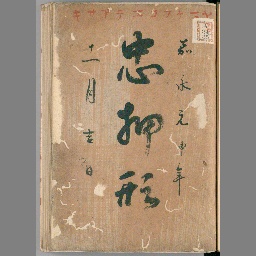 嘉永元申年
忠押形
十一月吉日